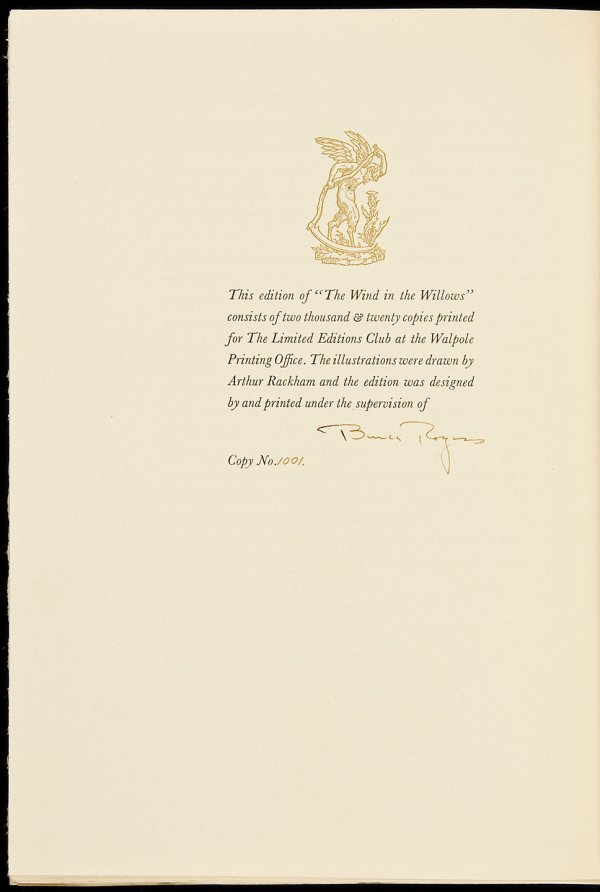 This edition of “The Wind in the Willows”
consists of two thousand & twenty copies printed
for The Limited Editions Club at the Walpole
Printing Office. The illustrations were drawn by
Arthur Rackham and the edition was designed
by and printed under the supervision of
Bruce Rogers
Copy No. 1001.